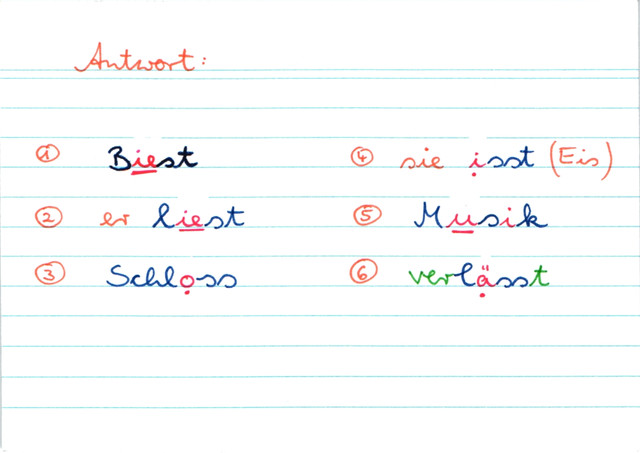 Antwort:
① Biest
② er liest
③ Schloss
④ sie isst (Eis)
⑤ Musik
⑥ verlässt